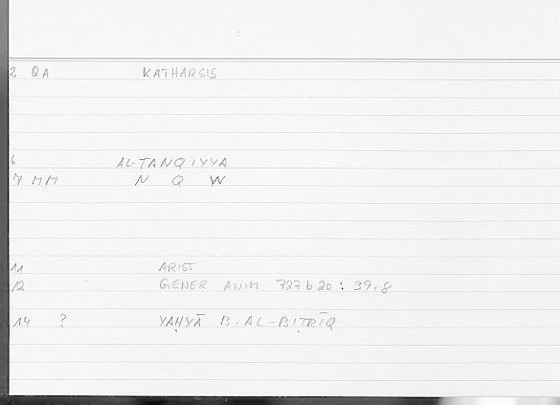 2 QA KATHARSIS
6 AL-TANQIYYA
7 MM N Q W
11 ARIST
12 GENER ANIM 727b20 : 39.8
14 ? YAḤYĀ B. AL-BIṬRĪQ